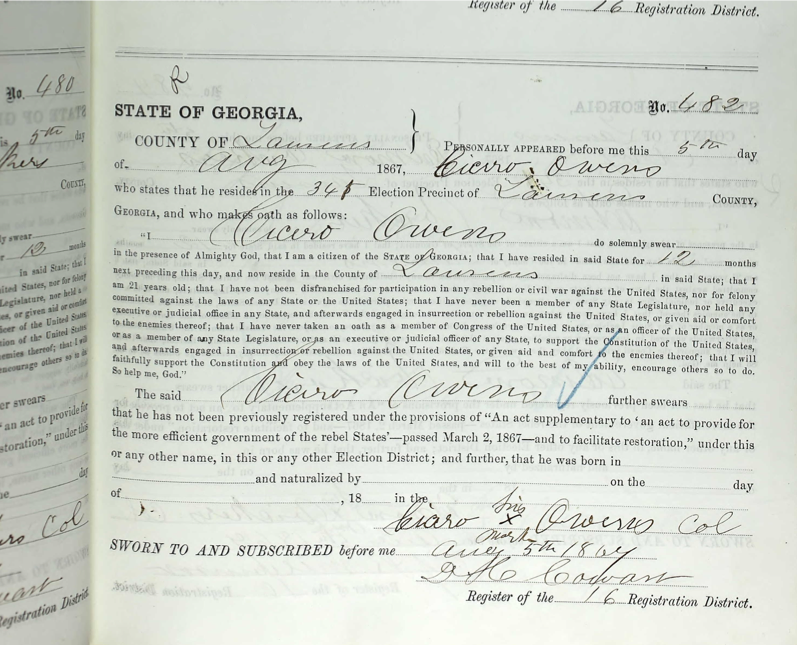 Register of the 16 Registration District.
No. 480
R
No. 482
STATE OF GEORGIA,
COUNTY OF Laurens } PERSONALLY APPEARED before me this 5th day
of Aug 1867, Cicero Owens
who states that he resides in the 345 Election Precinct of Laurens COUNTY,
GEORGIA, and who makes oath as follows:
"I Cicero Owens do solemnly swear
in the presence of Almighty God, that I am a citizen of the STATE OF GEORGIA; that I have resided in said State for 12 months
next preceding this day, and now reside in the County of Laurens in said State; that I
am 21 years old; that I have not been disfranchised for participation in any rebellion or civil war against the United States, nor for felony
committed against the laws of any State or the United States; that I have never been a member of any State Legislature, nor held any
executive or judicial office in any State, and afterwards engaged in insurrection or rebellion against the United States, or given aid or comfort
to the enemies thereof; that I have never taken an oath as a member of Congress of the United States, or as an officer of the United States,
or as a member of any State Legislature, or as an executive or judicial officer of any State, to support the Constitution of the United States,
and afterwards engaged in insurrection or rebellion against the United States, or given aid and comfort to the enemies thereof; that I will
faithfully support the Constitution and obey the laws of the United States, and will to the best of my ability, encourage others so to do.
So help me, God."
The said Cicero Owens further swears
that he has not been previously registered under the provisions of "An act supplementary to 'an act to provide for
the more efficient government of the rebel States'—passed March 2, 1867—and to facilitate restoration," under this
or any other name, in this or any other Election District; and further, that he was born in
and naturalized by on the day
of , 18 in the
Cicero his x mark Owens Col
SWORN TO AND SUBSCRIBED before me Aug 5th 1867
Cowart
Register of the 16 Registration District.